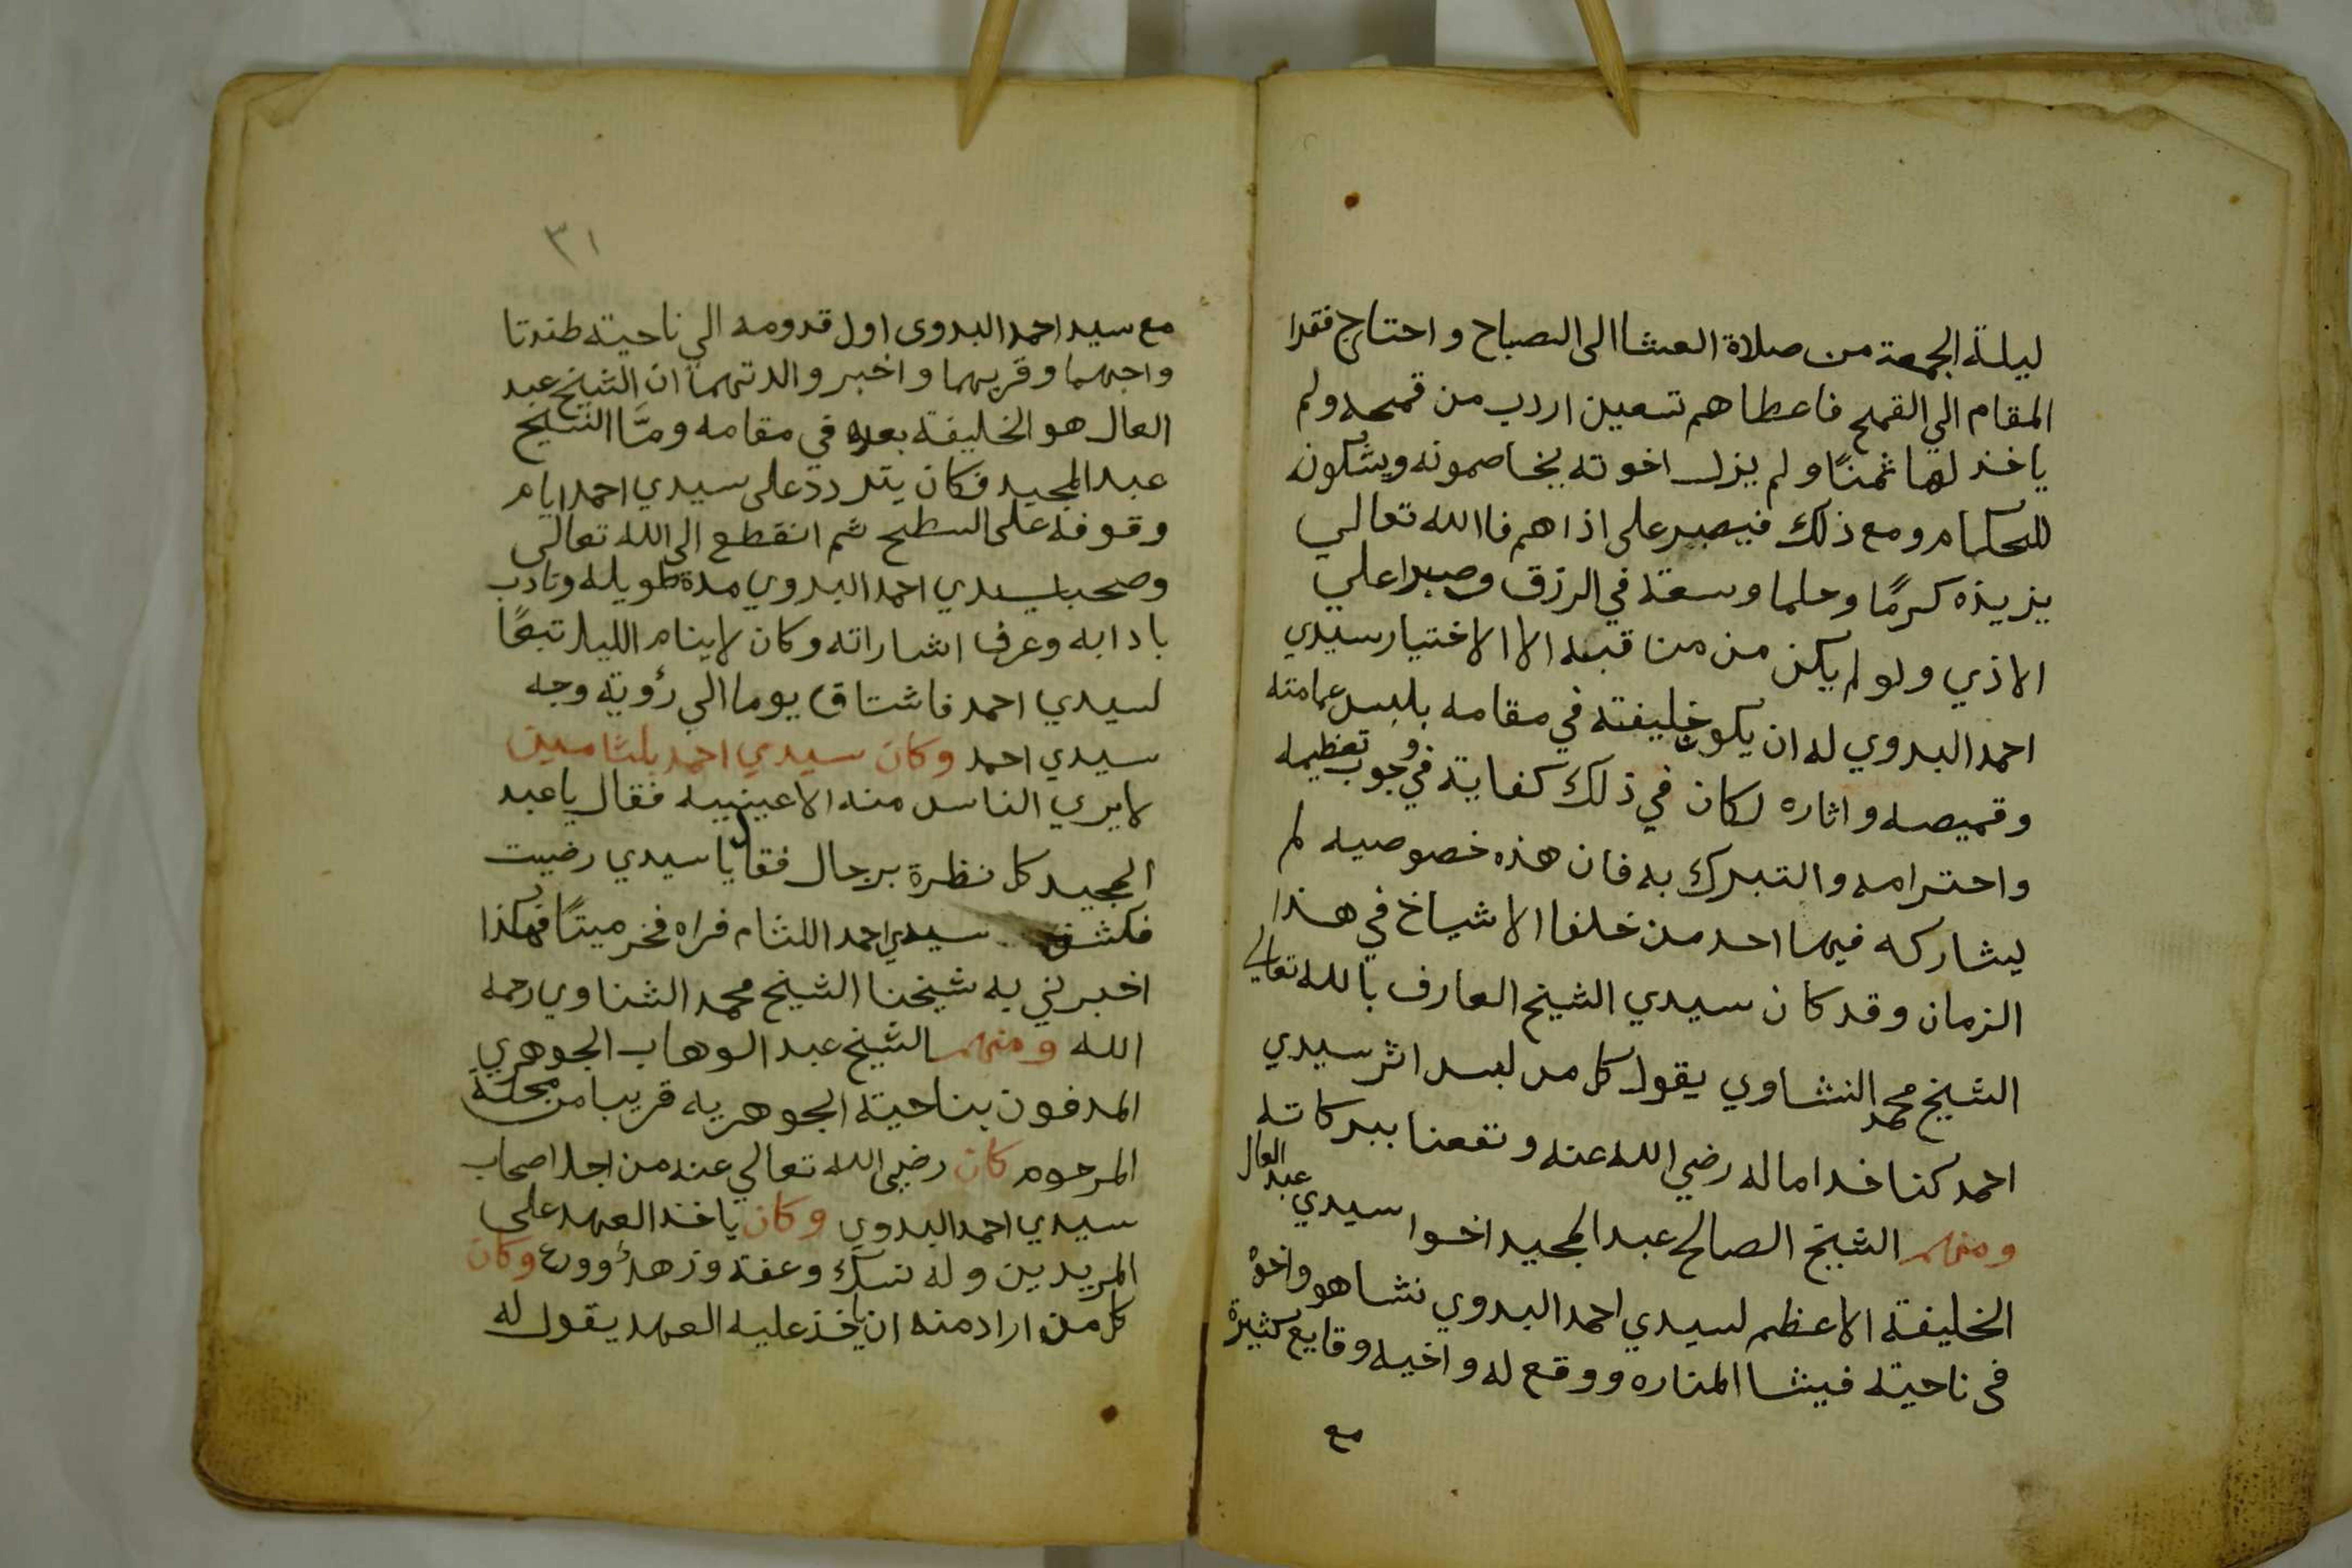 ليلة الجمعة من صلاة العشا الى الصباح واحتاج فقرا
المقام الي القمح فاعطاهم تسعين اردب من قمحه ولم
ياخذ لها ثمنًا ولم يزل اخوته يخاصمونه ويشكونه
للحكام ومع ذلك فيصبر على اذاهم فاالله تعالي
يزيده كرمًا وحلما وسعة في الرزق وصبرا علي
الاذي ولو لم يكن من مناقبه الا الاختيار سيدي
احمد البدوي له ان يكون خليفته في مقامه بلبس عمامته
وقميصه واثاره لكان في ذلك كفاية في وجوب تعظيمه
واحترامه والتبرك به فان هذه خصوصيه لم
يشاركه فيها احد من خلفا الاشياخ في هذا
الزمان وقد كان سيدي الشيخ العارف بالله تعالي
الشيخ محمد النشاوي يقول كل من لبس اثر سيدي
احمد كنا خداما له رضي الله عنه ونفعنا ببركاته
ومنهم الشيخ الصالح عبد المجيد اخوا سيدي عبد العال
الخليفة الاعظم لسيدي احمد البدوي نشا هو واخوه
فى ناحية فيشا المناره ووقع له واخيه وقايع كثيرة
مع
٣١
مع سيد احمد البدوى اول قدومه الي ناحية طندتا
واحبهما وقربهما واخبر والدتهما ان الشيخ عبد
العال هو الخليفة بعده في مقامه ومَّا الشيخ
عبد المجيد فكان يتردد على سيدي احمد ايام
وقوفه على السطح ثم انقطع الى الله تعالى
وصحب سيدي احمد البدوي مدة طويله وتادب
بادابه وعرف اشاراته وكان لاينام الليل تبعًا
لسيدي احمد فاشتاق يوما الي رؤية وجه
سيدي احمد وكان سيدي احمد بلثامين
لايري الناس منه الا عينييه فقال ياعبد
المجيد كل نظرة برجال فقال يا سيدي رضيت
فكشف سيدي احمد اللثام فراه فخر ميتًا فهكذا
اخبرني به شيخنا الشيخ محمد الشناوي رحمه
الله ومنهم الشيخ عبد الوهاب الجوهري
المدفون بناحية الجوهريه قريبا من محلة
المرحوم كان رضي الله تعالي عنه من اجل اصحاب
سيدي احمد البدوي وكان ياخذ العهد على
المريدين وله نسك وعفة وزهدٌ وورع وكان
كل من اراد منه ان ياخذ عليه العهد يقول له